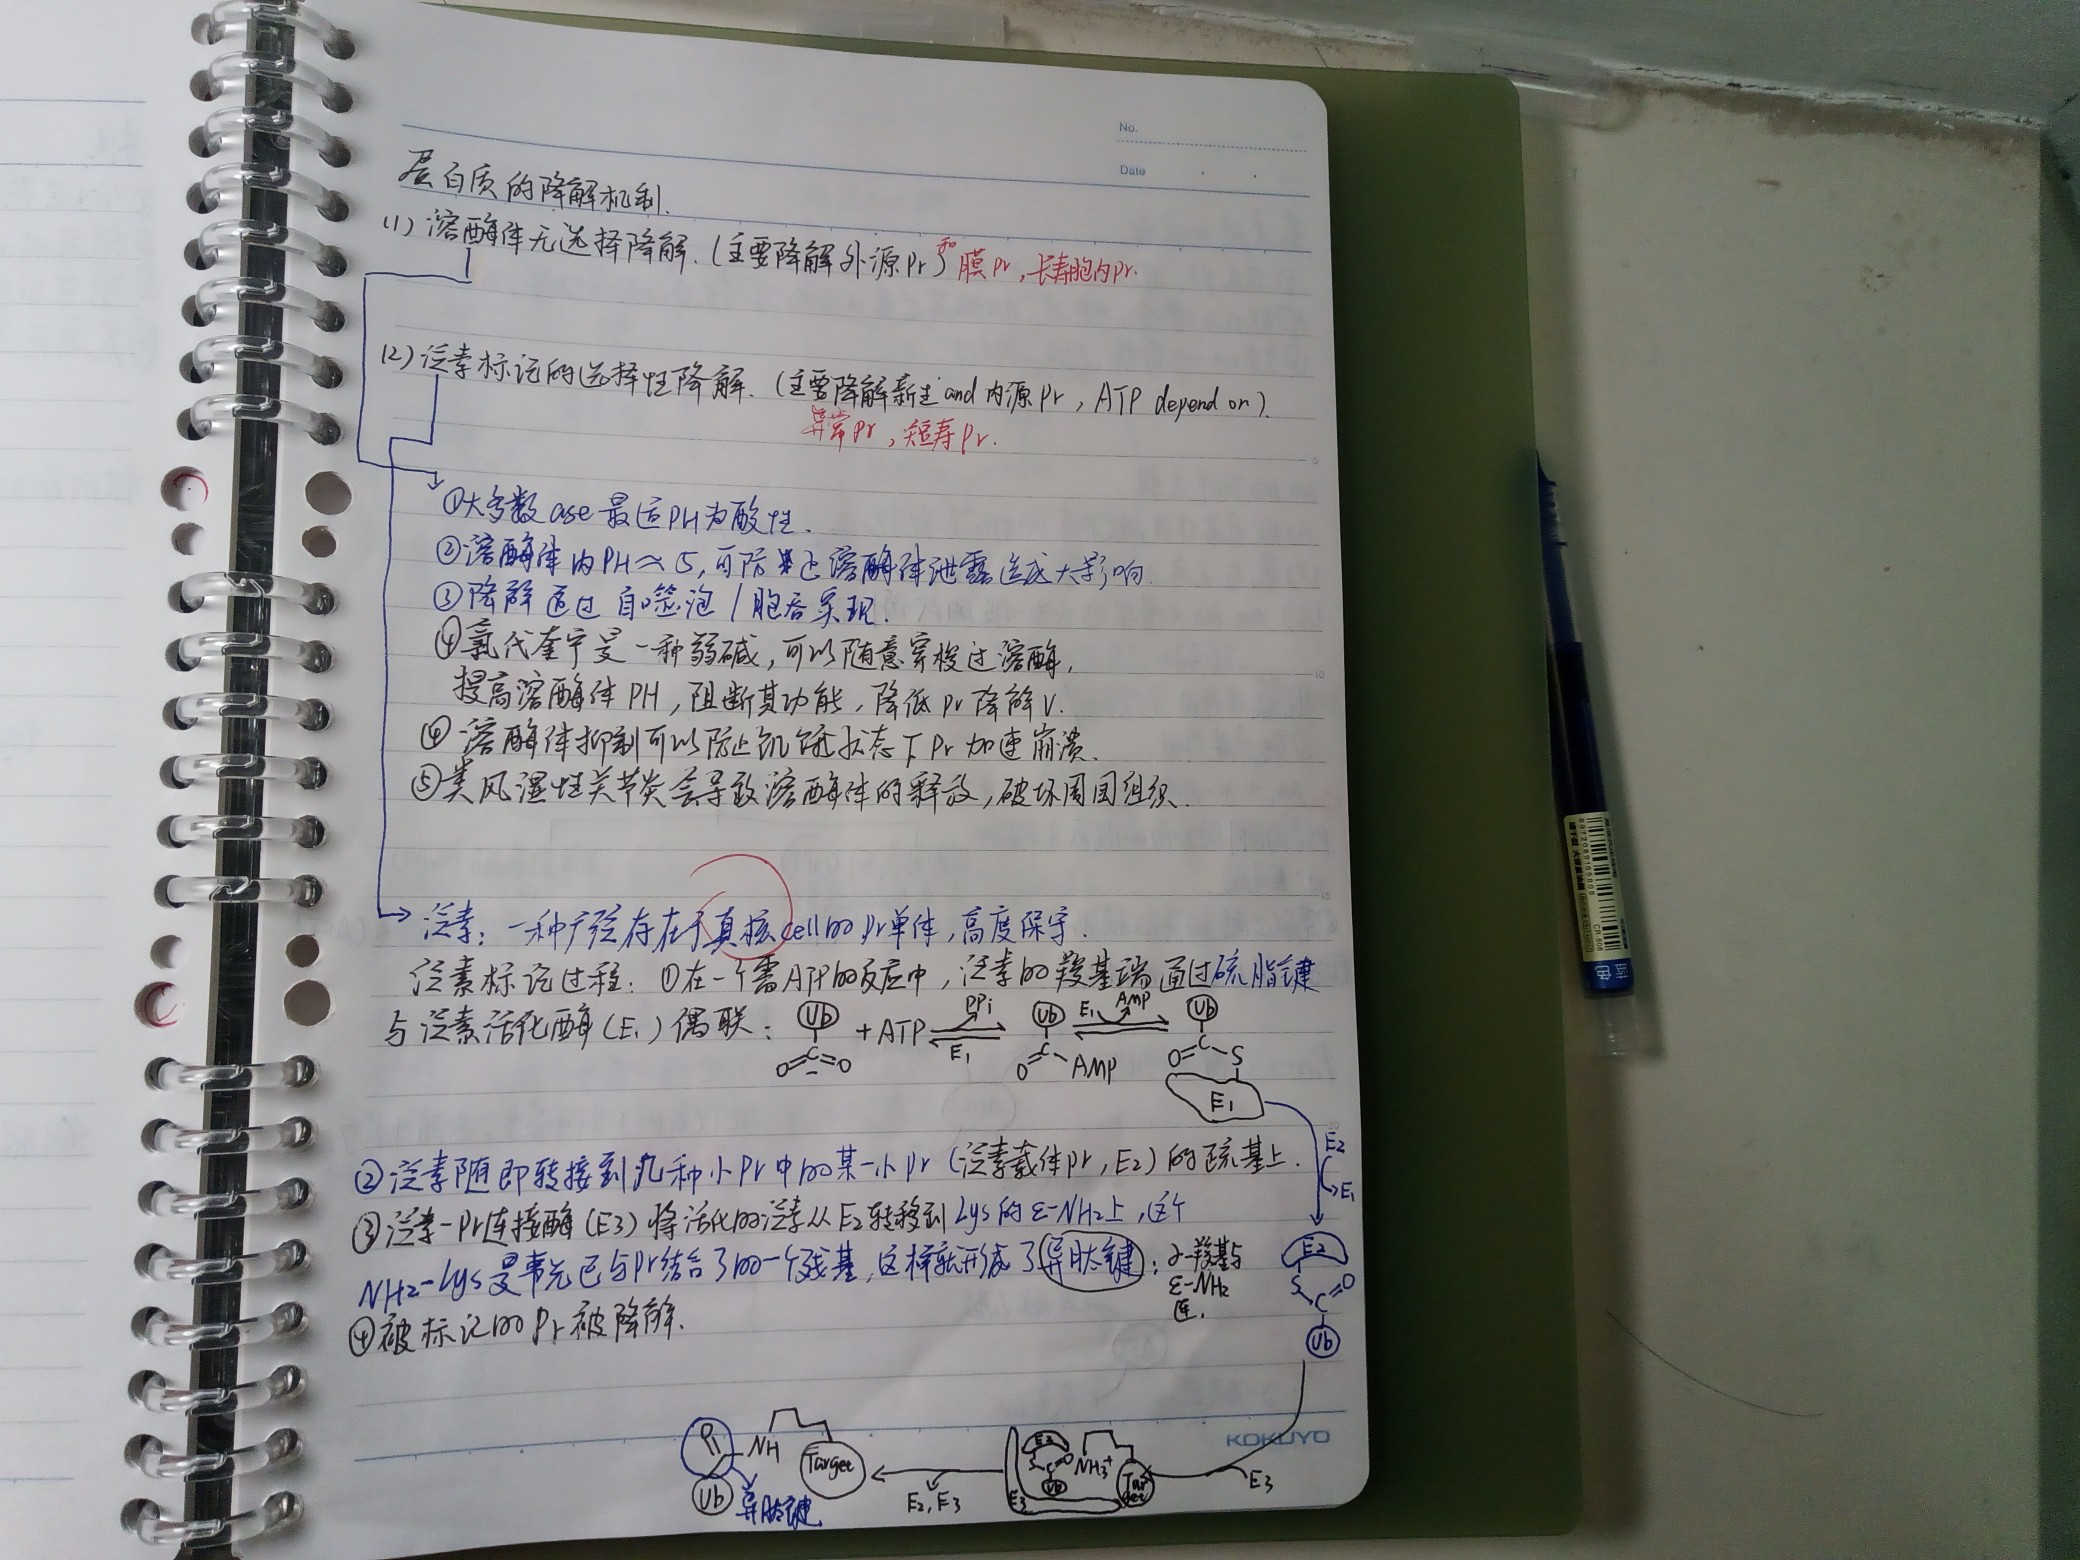 No.
Date
蛋白质的降解机制.
(1) 溶酶体无选择降解. (主要降解外源Pr) 和膜Pr, 长寿胞内Pr.
(2) 泛素标记的选择性降解. (主要降解新生and内源Pr, ATP depend on).
异常Pr, 短寿Pr.
①大多数ase最适PH为酸性.
②溶酶体内PH≈5, 可防止溶酶体泄露造成大影响.
③降解通过自噬泡/胞吞实现.
④氯代奎宁是一种弱碱, 可以随意穿梭过溶酶,
提高溶酶体PH, 阻断其功能, 降低Pr降解V.
④溶酶体抑制可以防止饥饿状态下Pr加速崩溃.
⑤类风湿性关节炎会导致溶酶体的释放, 破坏周围组织.
泛素: 一种广泛存在于真核cell的Pr单体, 高度保守.
泛素标记过程: ①在一个需ATP的反应中, 泛素的羧基端通过硫脂键
与泛素活化酶(E1)偶联:
Ub C O O - + ATP PPi E1 Ub O C AMP E1 AMP Ub O C S E1
E2 E1
②泛素随即转接到几种小Pr中的某一小Pr (泛素载体Pr, E2) 的巯基上.
③泛素-Pr连接酶(E3) 将活化的泛素从E2转移到Lys的ε-NH2上, 这个
NH2-Lys是事先已与Pr结合了的一个残基, 这样就形成了异肽键: α-羧基与
ε-NH2
连.
E2 S C O Ub
④被标记的Pr被降解.
KOKUYO
NH Target Ub 异肽键
E2, E3
E2 S C O Ub NH3+ Target E3
E3